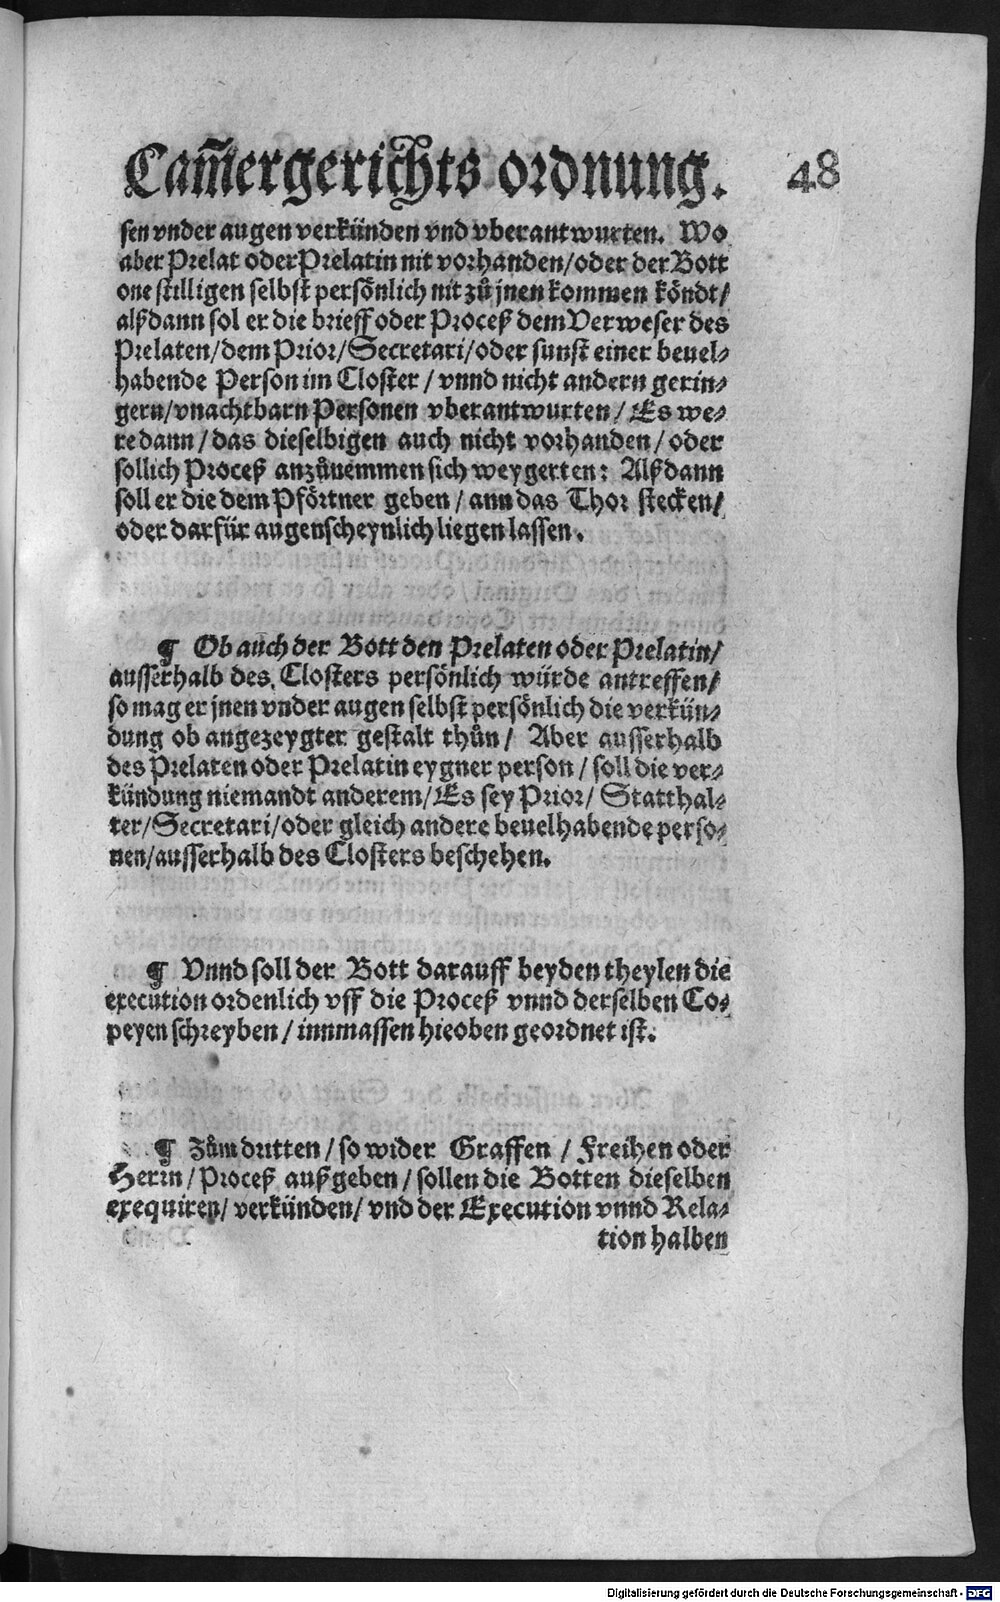 Cam̃ergerichts ordnung. 48
sen vnder augen verkünden vnd vberantwurten. Wo
aber Prelat oder Prelatin nit vorhanden/oder der Bott
one stilligen selbst persönlich nit zů jnen kommen köndt/
alßdann sol er die brieff oder Proceß dem Verweser des
Prelaten/dem Prior/Secretari/oder sunst einer beuel⸗
habende Person im Closter/vnnd nicht andern gerin⸗
gern/vnachtbarn Personen vberantwurten/Es we⸗
re dann/das dieselbigen auch nicht vorhanden/oder
sollich Proceß anzůnemmen sich weygerten: Alßdann
soll er die dem Pförtner geben/ann das Thor stecken/
oder darfür augenscheynlich liegen lassen.
¶ Ob auch der Bott den Prelaten oder Prelatin/
ausserhalb des Closters persönlich würde antreffen/
so mag er jnen vnder augen selbst persönlich die verkün⸗
dung ob angezeygter gestalt thůn/ Aber ausserhalb
des Prelaten oder Prelatin eygner person/soll die ver⸗
kündung niemandt anderem/Es sey Prior/Statthal⸗
ter/Secretari/oder gleich andere beuelhabende perso⸗
nen/ausserhalb des Closters beschehen.
¶ Vnnd soll der Bott darauff beyden theylen die
execution ordenlich vff die Proceß vnnd derselben Co⸗
peyen schreyben/innmassen hieoben geordnet ist.
¶ Zům dritten/so wider Graffen/Freihen oder
Herrn/Proceß außgeben/sollen die Botten dieselben
exequiren/verkünden/vnd der Execution vnnd Rela⸗
tion halben
Digitalisierung gefördert durch die Deutsche Forschungsgemeinschaft - DFG